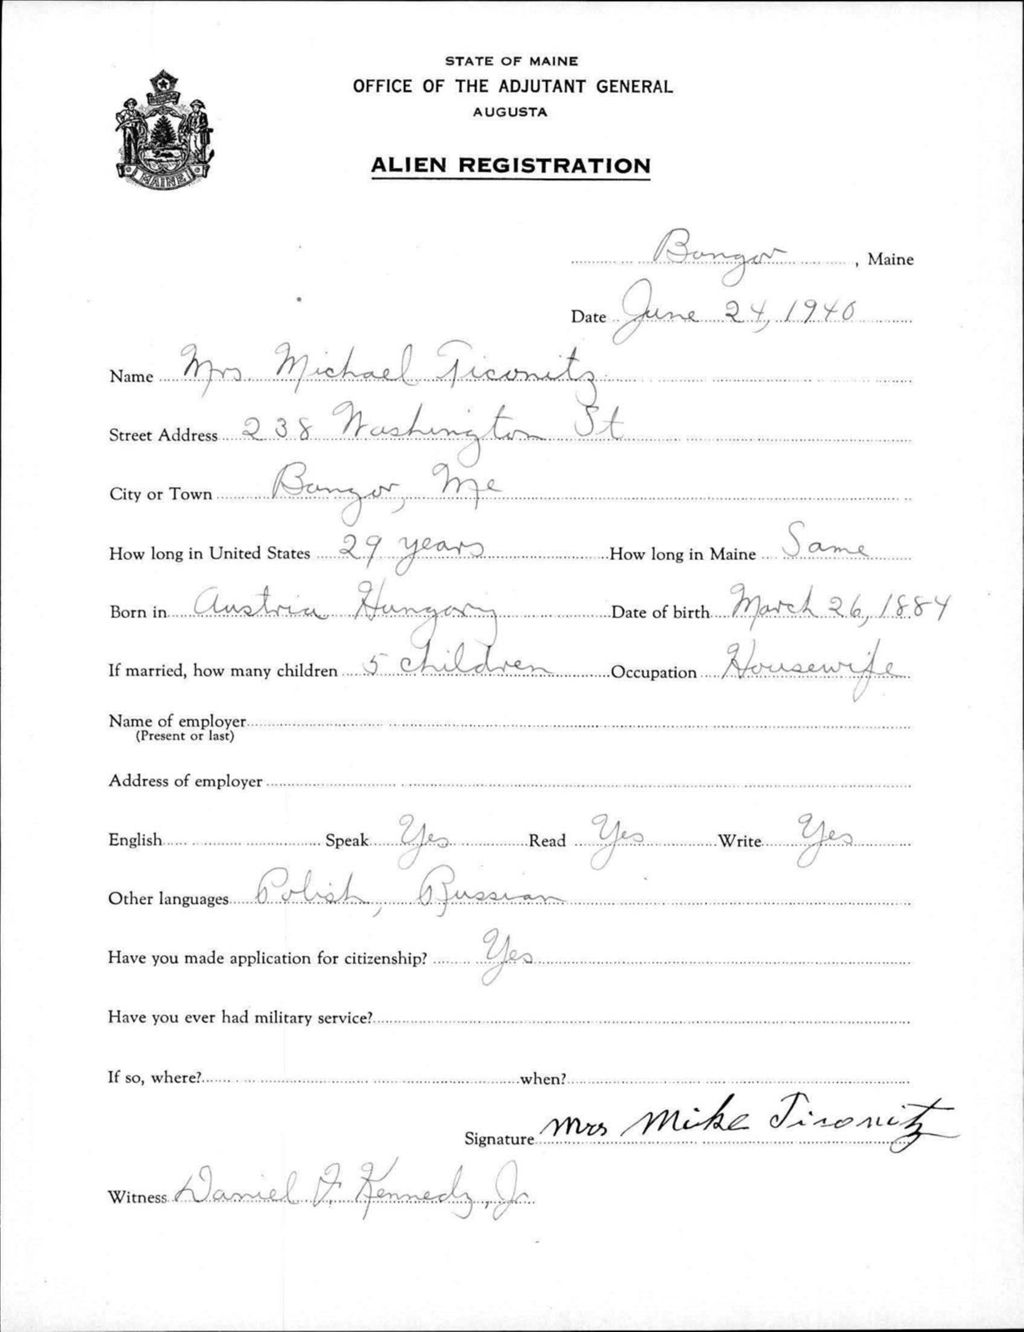 STATE OF MAINE
OFFICE OF THE ADJUTANT GENERAL
AUGUSTA
ALIEN REGISTRATION
MAINE
Bangor, Maine
Date June 24, 1940
Name Mrs. Michael Ticonitz
Street Address 238 Washington St
City or Town Bangor, Me
How long in United States 29 years How long in Maine Same
Born in Austria Hungary Date of birth March 26, 1884
If married, how many children 5 children Occupation Housewife
Name of employer
(Present or last)
Address of employer
English Speak Yes Read Yes Write Yes
Other languages Polish, Russian
Have you made application for citizenship? Yes
Have you ever had military service?
If so, where? when?
Signature Mrs Mike Ticonitz
Witness Daniel F. Kennedy, Jr.